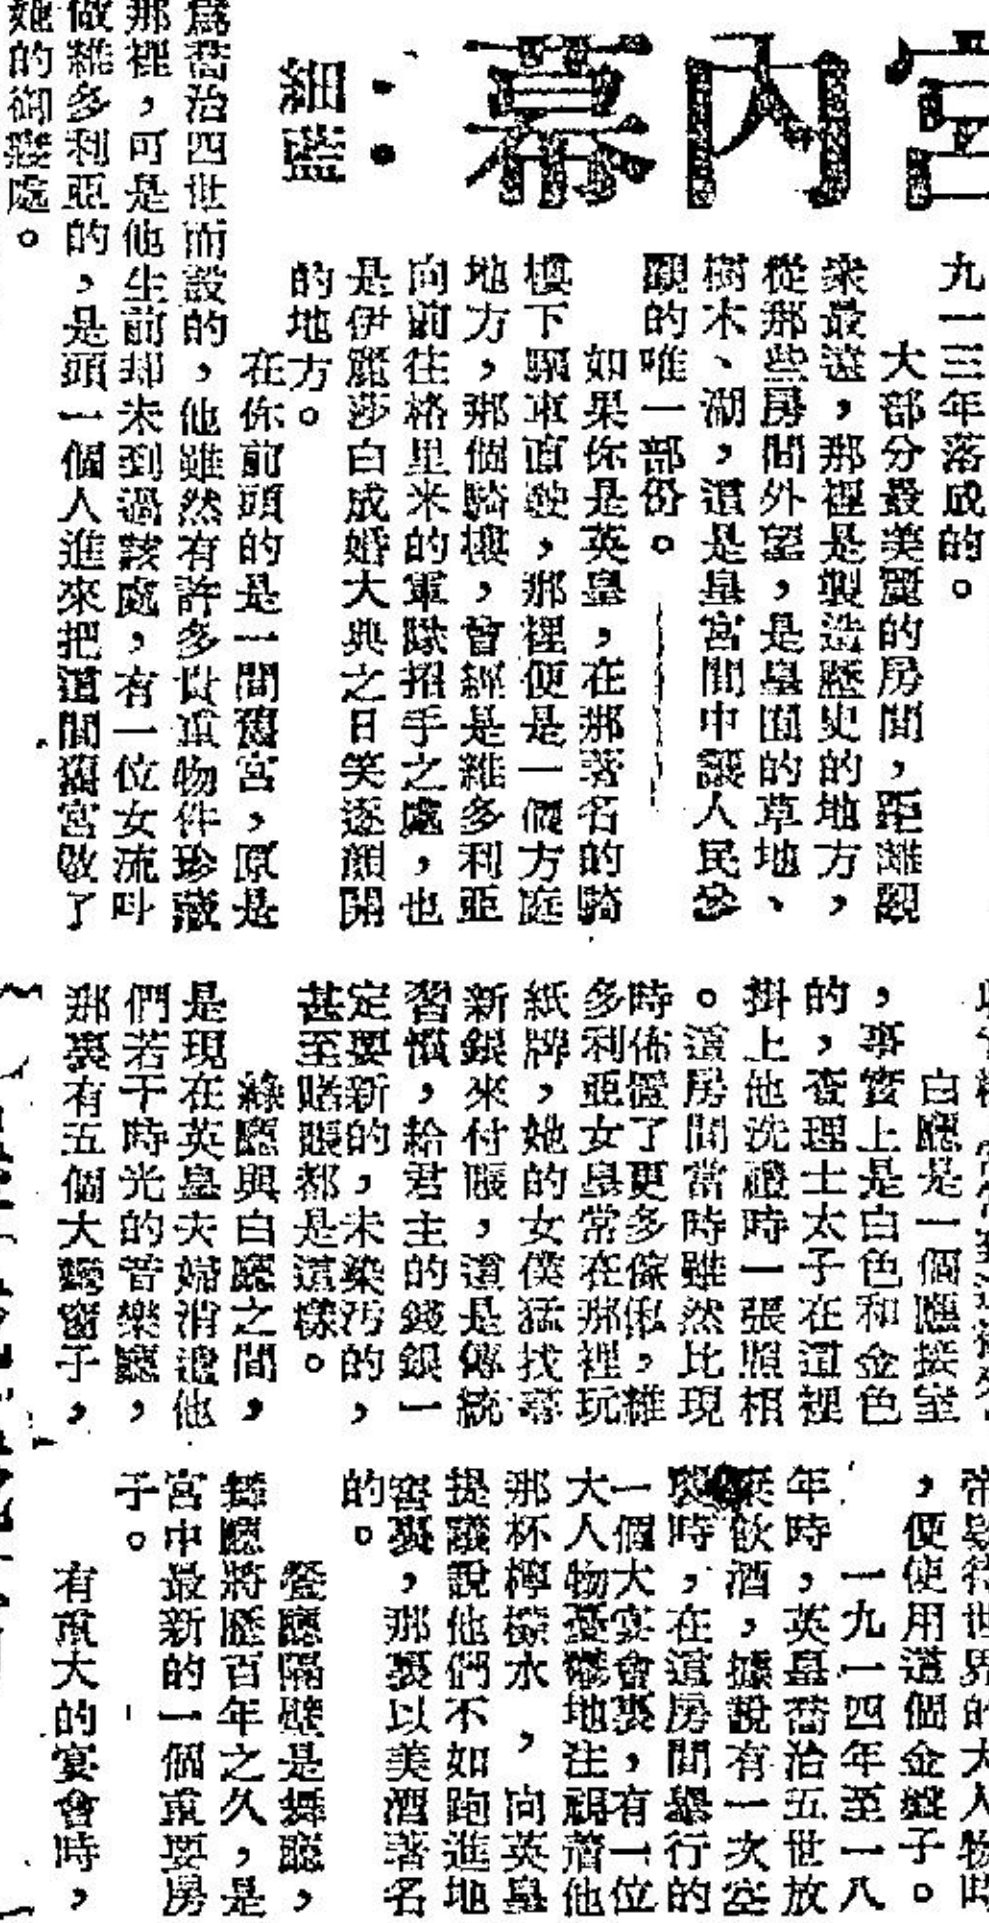 宮內幕：
細藍
九一三年落成的。
大部分最美麗的房間，距離觀
眾最遠，那裡是製造歷史的地方，
從那些房間外望，是皇園的草地、
樹木、湖，這是皇宮間中讓人民參
觀的唯一部份。
如果你是英皇，在那著名的騎
樓下驅車直駛，那裡便是一個方庭
地方，那個騎樓，曾經是維多利亞
向前往格里米的軍隊招手之處，也
是伊麗莎白成婚大典之日笑逐顏開
的地方。
在你前頭的是一間舊宮，原是
為喬治四世而設的，他雖然有許多貴重物件珍藏
那裡，可是他生前却未到過該處，有一位女流叫
做維多利亞的，是頭一個人進來把這間舊宮做了
她的御寢處。
白廳是一個應接室
，事實上是白色和金色
的，查理士太子在這裡
掛上他洗禮時一張照相
。這房間當時雖然比現
時佈置了更多傢俬，維
多利亞女皇常在那裡玩
紙牌，她的女僕猛找嶄
新銀來付賬，這是傳統
習慣，給君主的錢銀一
定要新的，未染污的，
甚至賭賬都是這樣。
綠廳與白廳之間，
是現在英皇夫婦消遣他
們若干時光的音樂廳，
那裏有五個大彎窗子，
帝款待世界的大人物時
，便使用這個金盤子。
一九一四年至一八
年時，英皇喬治五世放
棄飲酒，據說有一次空
襲時，在這房間舉行的
一個大宴會裏，有一位
大人物憂鬱地注視著他
那杯檸檬水，向英皇
提議說他們不如跑進地
窖裏，那裏以美酒著名
的。
餐廳隔壁是舞廳，
舞廳將歷百年之久，是
宮中最新的一個重要房
子。
有重大的宴會時，